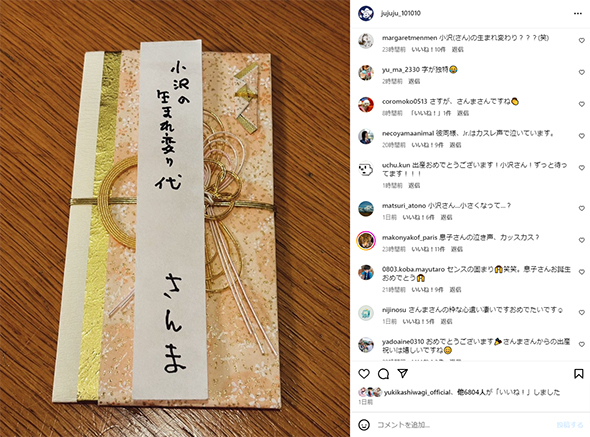 小沢の
生まれ変り代
さんま
jujuju_101010
margaretmenmen 小沢(さん)の生まれ変わり？？？(笑)
23時間前 いいね！10件 返信
yu_ma_2330 字が独特😂
2時間前 返信
coromoko0513 さすが、さんまさんですね👏
8時間前 「いいね！」1件 返信
necoyamaanimal 彼同様、Jr.はカスレ声で泣いています。
20時間前 いいね！9件 返信
uchu.kun 出産おめでとうございます！小沢さん！ずっと待っ
てます！！！
1時間前 返信
matsuri_atono 小沢さん…小さくなって…？
1日前 いいね！6件 返信
makonyakof_paris 息子さんの泣き声、カッスカス？
23時間前 いいね！11件 返信
0803.koba.mayutaro センスの固まり🙌笑笑。息子さんお誕生
おめでとう🙌
21時間前 いいね！9件 返信
nijinosu さんまさんの粋な心遣い凄いですおめでたいです☺
1日前 いいね！5件 返信
yadoaine0310 おめでとうございます🎉さんまさんからの出産
祝いは嬉しいですね😊
yukikashiwagi_official、他6804人が「いいね！」しました
1日前
コメントを追加...
投稿する